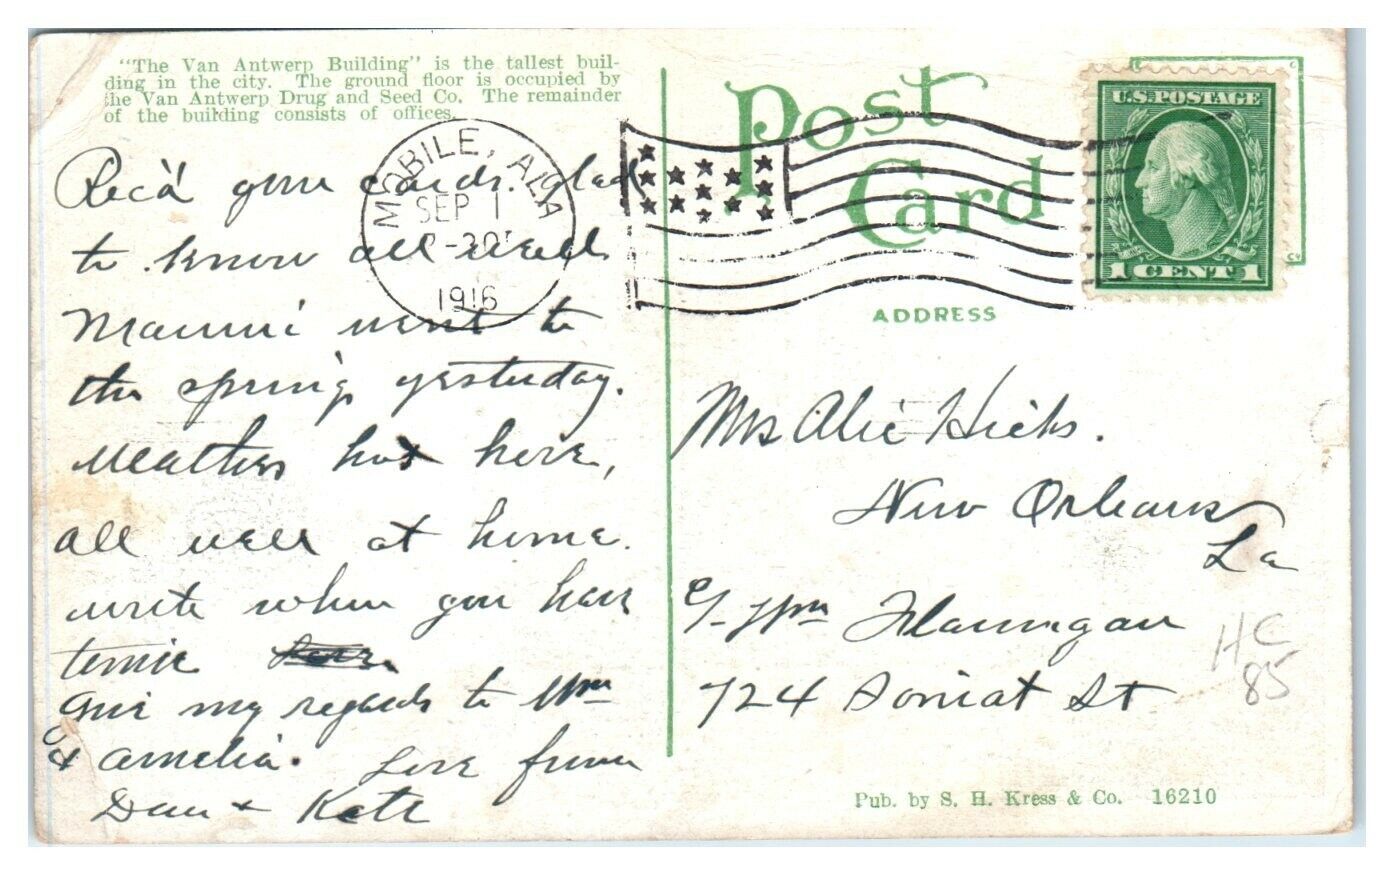 "The Van Antwerp Building" is the tallest buil-
ding in the city. The ground floor is occupied by
the Van Antwerp Drug and Seed Co. The remainder
of the building consists of offices.
Rec'd your cards. glad
to know all well
Mamie went to
the spring yesterday.
Weather hot here,
all well at home.
write when you have
time
Give my regards to Wm
& Amelia. Love from
Dan & Kate
MOBILE, ALA
SEP 1
1916
Post
Card
U.S. POSTAGE
1 CENT 1
ADDRESS
Mrs Alic Hicks.
New Orleans
La
c/- Wm Flannigan
724 Soniat St
HC
85
Pub. by S. H. Kress & Co. 16210